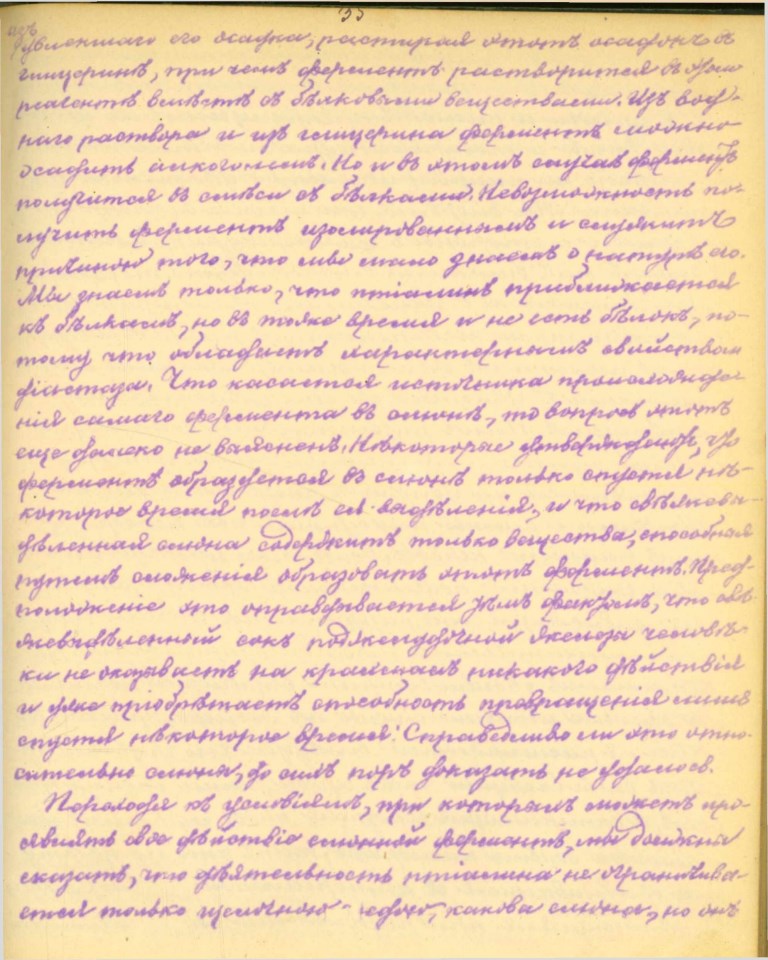 33
изъ
увлекшаго его осадка, растирая этотъ осадокъ въ
глицеринѣ, при чемъ ферментъ растворится въ этомъ
реагентѣ вмѣстѣ съ бѣлковыми веществами. Изъ вод-
наго раствора и изъ глицерина ферментъ можно
осадить алкоголемъ. Но и въ этомъ случаѣ ферментъ
получится въ смѣси съ бѣлками. Невозможность по-
лучить ферментъ изолированнымъ и служитъ
причиною того, что мы мало знаемъ о натурѣ его.
Мы знаемъ только, что птіалинъ приближается
къ бѣлкамъ, но въ тоже время и не есть бѣлокъ, по-
тому что обладаетъ характернымъ свойствомъ
діастаза. Что касается источника происхожде-
нія самаго фермента въ слюнѣ, то вопросъ этотъ
еще далеко не выясненъ. Нѣкоторые утверждаютъ, что
ферментъ образуется въ слюнѣ только спустя нѣ-
которое время послѣ ея выдѣленія, и что свѣжевы-
дѣленная слюна содержитъ только вещества, способныя
путемъ сложенія образовать этотъ ферментъ. Пред-
положеніе это оправдывается тѣмъ фактомъ, что свѣ-
жевыдѣленный сокъ поджелудочной железы человѣ-
ка не оказываетъ на крахмалъ никакого дѣйствія
и уже пріобрѣтаетъ способность превращенія лишь
спустя нѣкоторое время. Справедливо ли это отно-
сительно слюны, до сихъ поръ доказать не удалось.
Переходя къ условіямъ, при которыхъ можетъ про-
являть свое дѣйствіе слюнной ферментъ, мы должны
сказать, что дѣятельность птіалина не ограничива-
ется только щелочною средою, какова слюна, но онъ